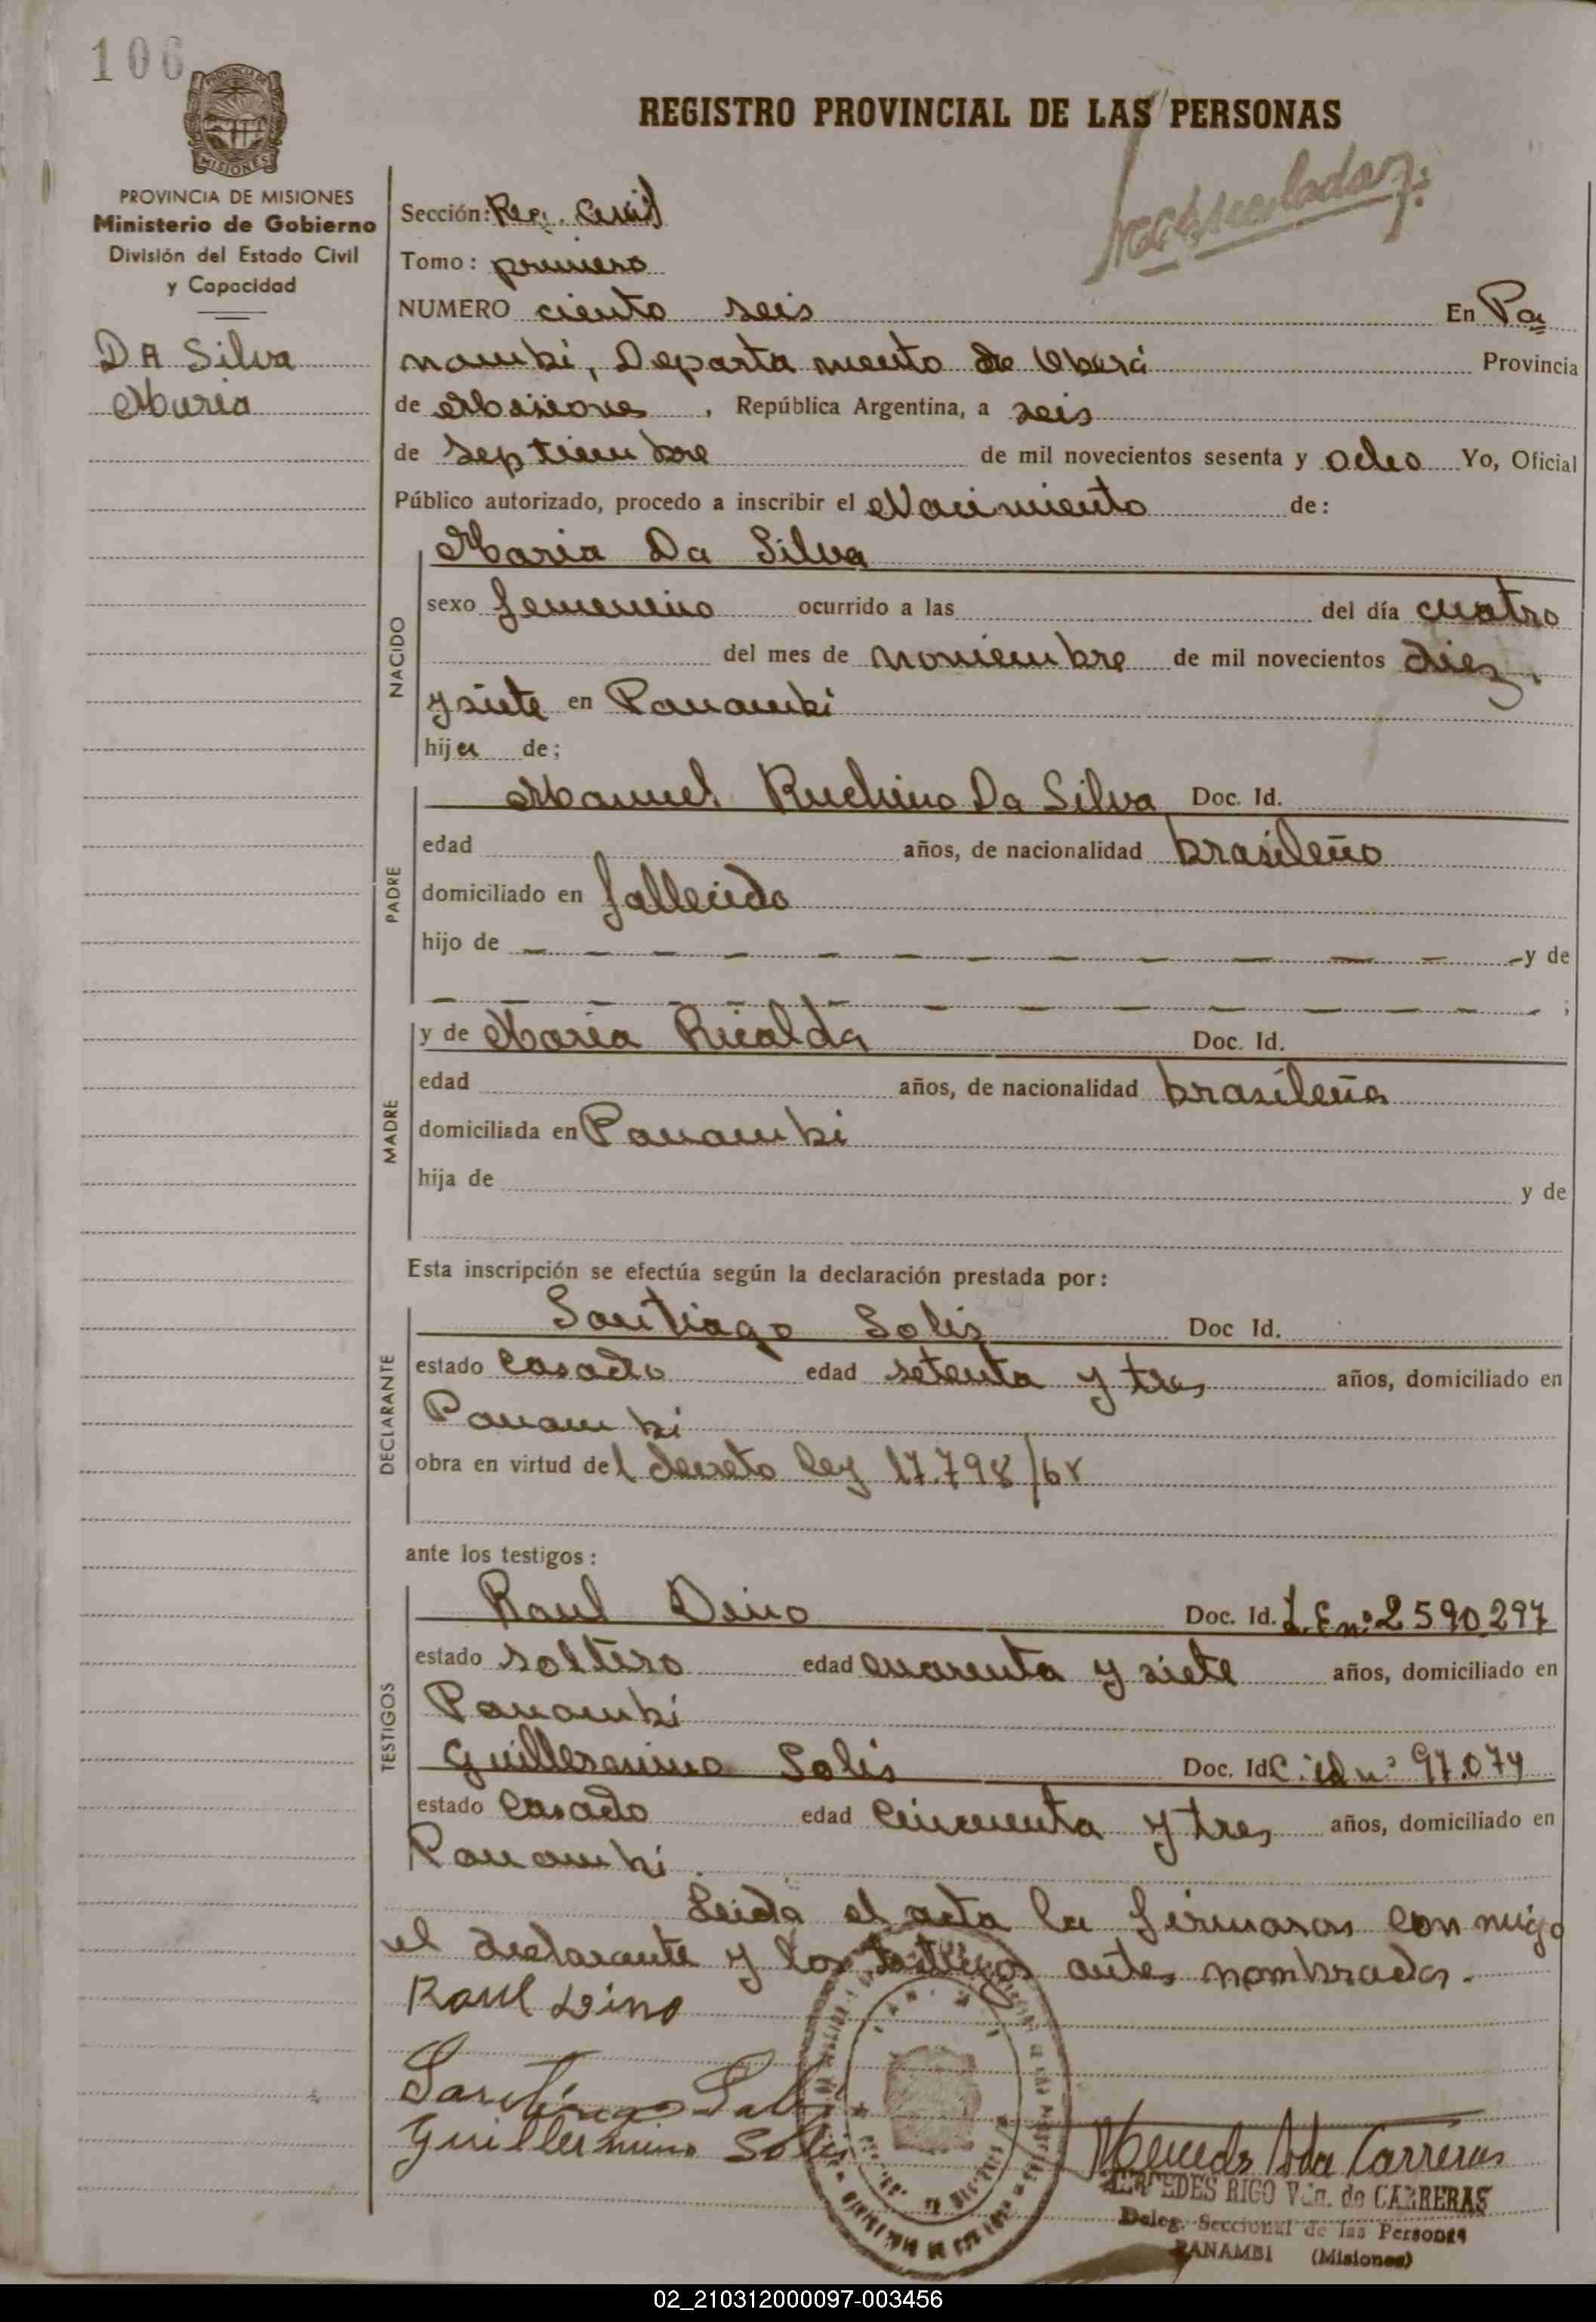 106
PROVINCIA DE
MISIONES
REGISTRO PROVINCIAL DE LAS PERSONAS
PROVINCIA DE MISIONES
Ministerio de Gobierno
División del Estado Civil
y Capacidad
DA Silva
Maria
Sección:
Tomo: primero
NUMERO ciento seis En Pa
nambi, Departamento de Oberá Provincia
de Misiones, República Argentina, a seis
de Septiembre de mil novecientos sesenta y ocho Yo, Oficial
Público autorizado, procedo a inscribir el Nacimiento de:
NACIDO
Maria Da Silva
sexo femenino ocurrido a las del día cuatro
del mes de noviembre de mil novecientos diez
y siete en Panambi
hija de;
PADRE
Manuel Da Silva Doc. Id.
edad años, de nacionalidad brasileño
domiciliado en fallecido
hijo de y de
;
MADRE
y de Maria Ricalda Doc. Id.
edad años, de nacionalidad brasileña
domiciliada en Panambi
hija de y de
Esta inscripción se efectúa según la declaración prestada por:
DECLARANTE
Santiago Solis Doc Id.
estado casado edad setenta y tres años, domiciliado en
Panambi
obra en virtud del decreto ley 17.798/68
ante los testigos:
TESTIGOS
Raul Dino Doc. Id. L.E nº 2590.297
estado soltero edad cuarenta y siete años, domiciliado en
Panambi
Guillermino Solis Doc. Id C. id nº 97.074
estado casado edad cincuenta y tres años, domiciliado en
Panambi.
Leida el acta la firmaron conmigo
el declarante y los testigos antes nombrados.
Raul Dino
Santiago Solis
Guillermino Solis
Carreras
MERCEDES RIGO Vda. de CARRERAS
Deleg. Seccional de las Personas
PANAMBI (Misiones)
02_210312000097-003456